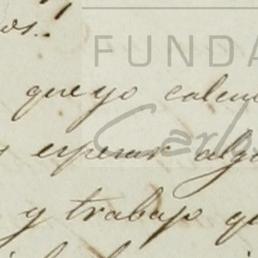 os.
FUNDA
que yo calcu
Carlos
esperar algo
y trabajo qu